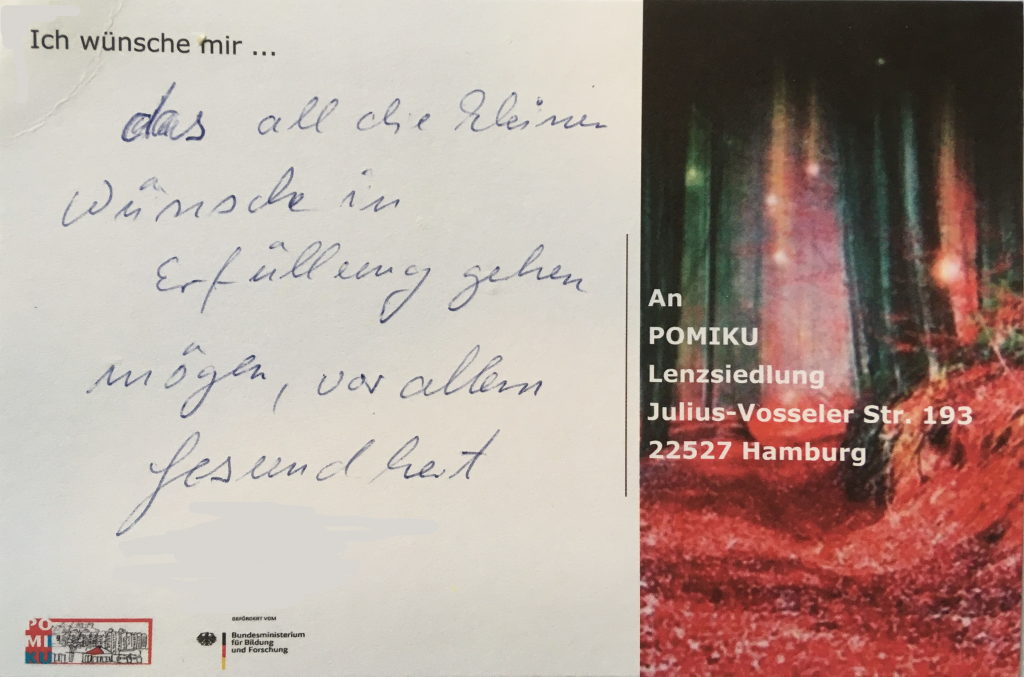 Ich wünsche mir ...
das all die kleinen
Wünsche in
Erfüllung gehen
mögen, vor allem
Gesundheit
An
POMIKU
Lenzsiedlung
Julius-Vosseler Str. 193
22527 Hamburg
PO
MI
KU
GEFÖRDERT VOM
Bundesministerium
für Bildung
und Forschung